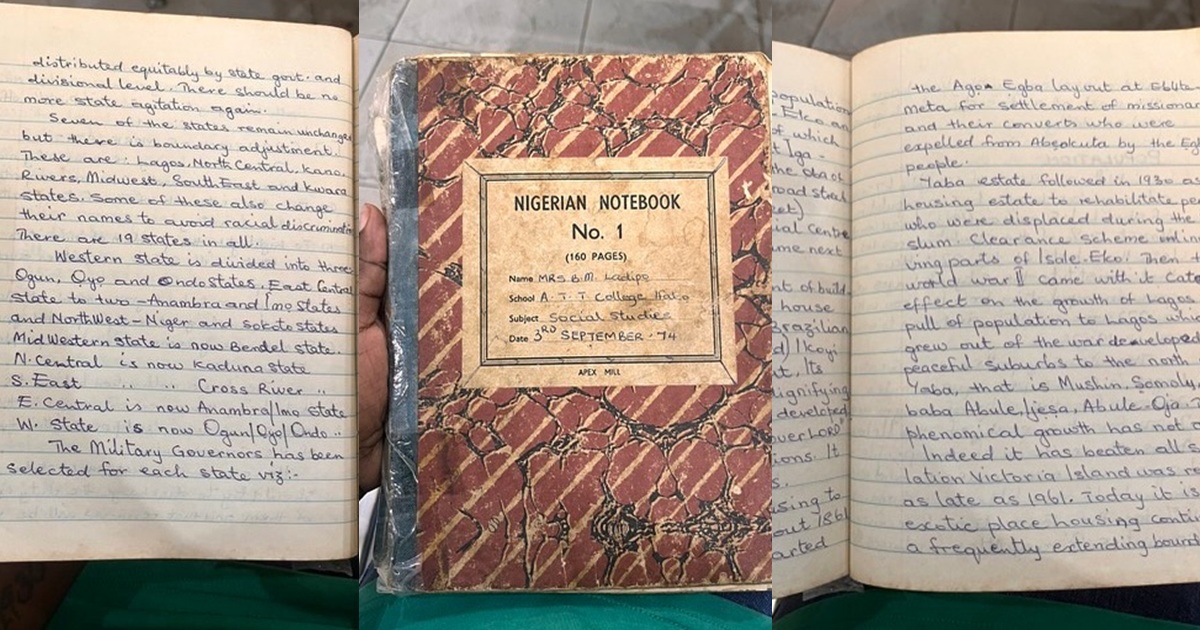 distributed equitably by state govt. and
divisional level. There should be no
more state agitation again.
Seven of the states remain unchanged
but there is boundary adjustment.
These are: Lagos, North Central, Kano
Rivers, Midwest, South East and Kwara
states. Some of these also change
their names to avoid racial discrimination
There are 19 states in all.
Western state is divided into three
Ogun, Oyo and Ondo states. East Central
state to two - Anambra and Imo states
and North West - Niger and Sokoto states
Mid Western state is now Bendel state.
N. Central is now Kaduna state
S. East " " Cross River "
E. Central is now Anambra/Imo state
W. State is now Ogun/Oyo/Ondo "
The Military Governors has been
selected for each state viz:-
NIGERIAN NOTEBOOK
No. 1
(160 PAGES)
Name MRS B.M. Ladipo
School A.T.T College
Subject Social Studies
Date 3RD SEPTEMBER. 74
APEX MILL
population
Eko an
of which
t Iga-
the oba of
road stree
et)
al centre
me next
nt of build
house
Brazilian
d) Ikoyi
t. Its
ignifying
developed
over LORD"
ions. It
s.
using to
out 1861
arted
the Ago Egba layout at Ebute
meta for settlement of missionar
and their converts who were
expelled from Abeokuta by the Eg
people.
Yaba estate followed in 1930 as
housing estate to rehabilitate pe
who were displaced during the
slum Clearance Scheme in
ving parts of Isale-Eko. Then t
world war II came with it Cat
effect on the growth of Lagos
pull of population to Lagos whi
grew out of the war developed
peaceful suburbs to the north
Yaba, that is Mushin, Somolu
baba Abule, Ijesa, Abule-Oja
phenomical growth has not
Indeed it has beaten all
lation Victoria Island was
as late as 1961. Today it is
exotic place housing conti
a frequently extending bound